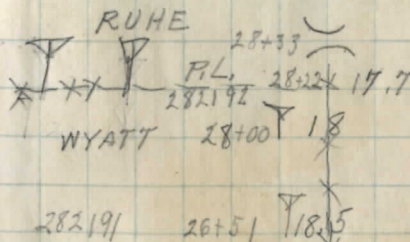 RUHE
28+33
P.L. 28+22 17.7
282192
WYATT 28+00 18
282191 26+51 18.5